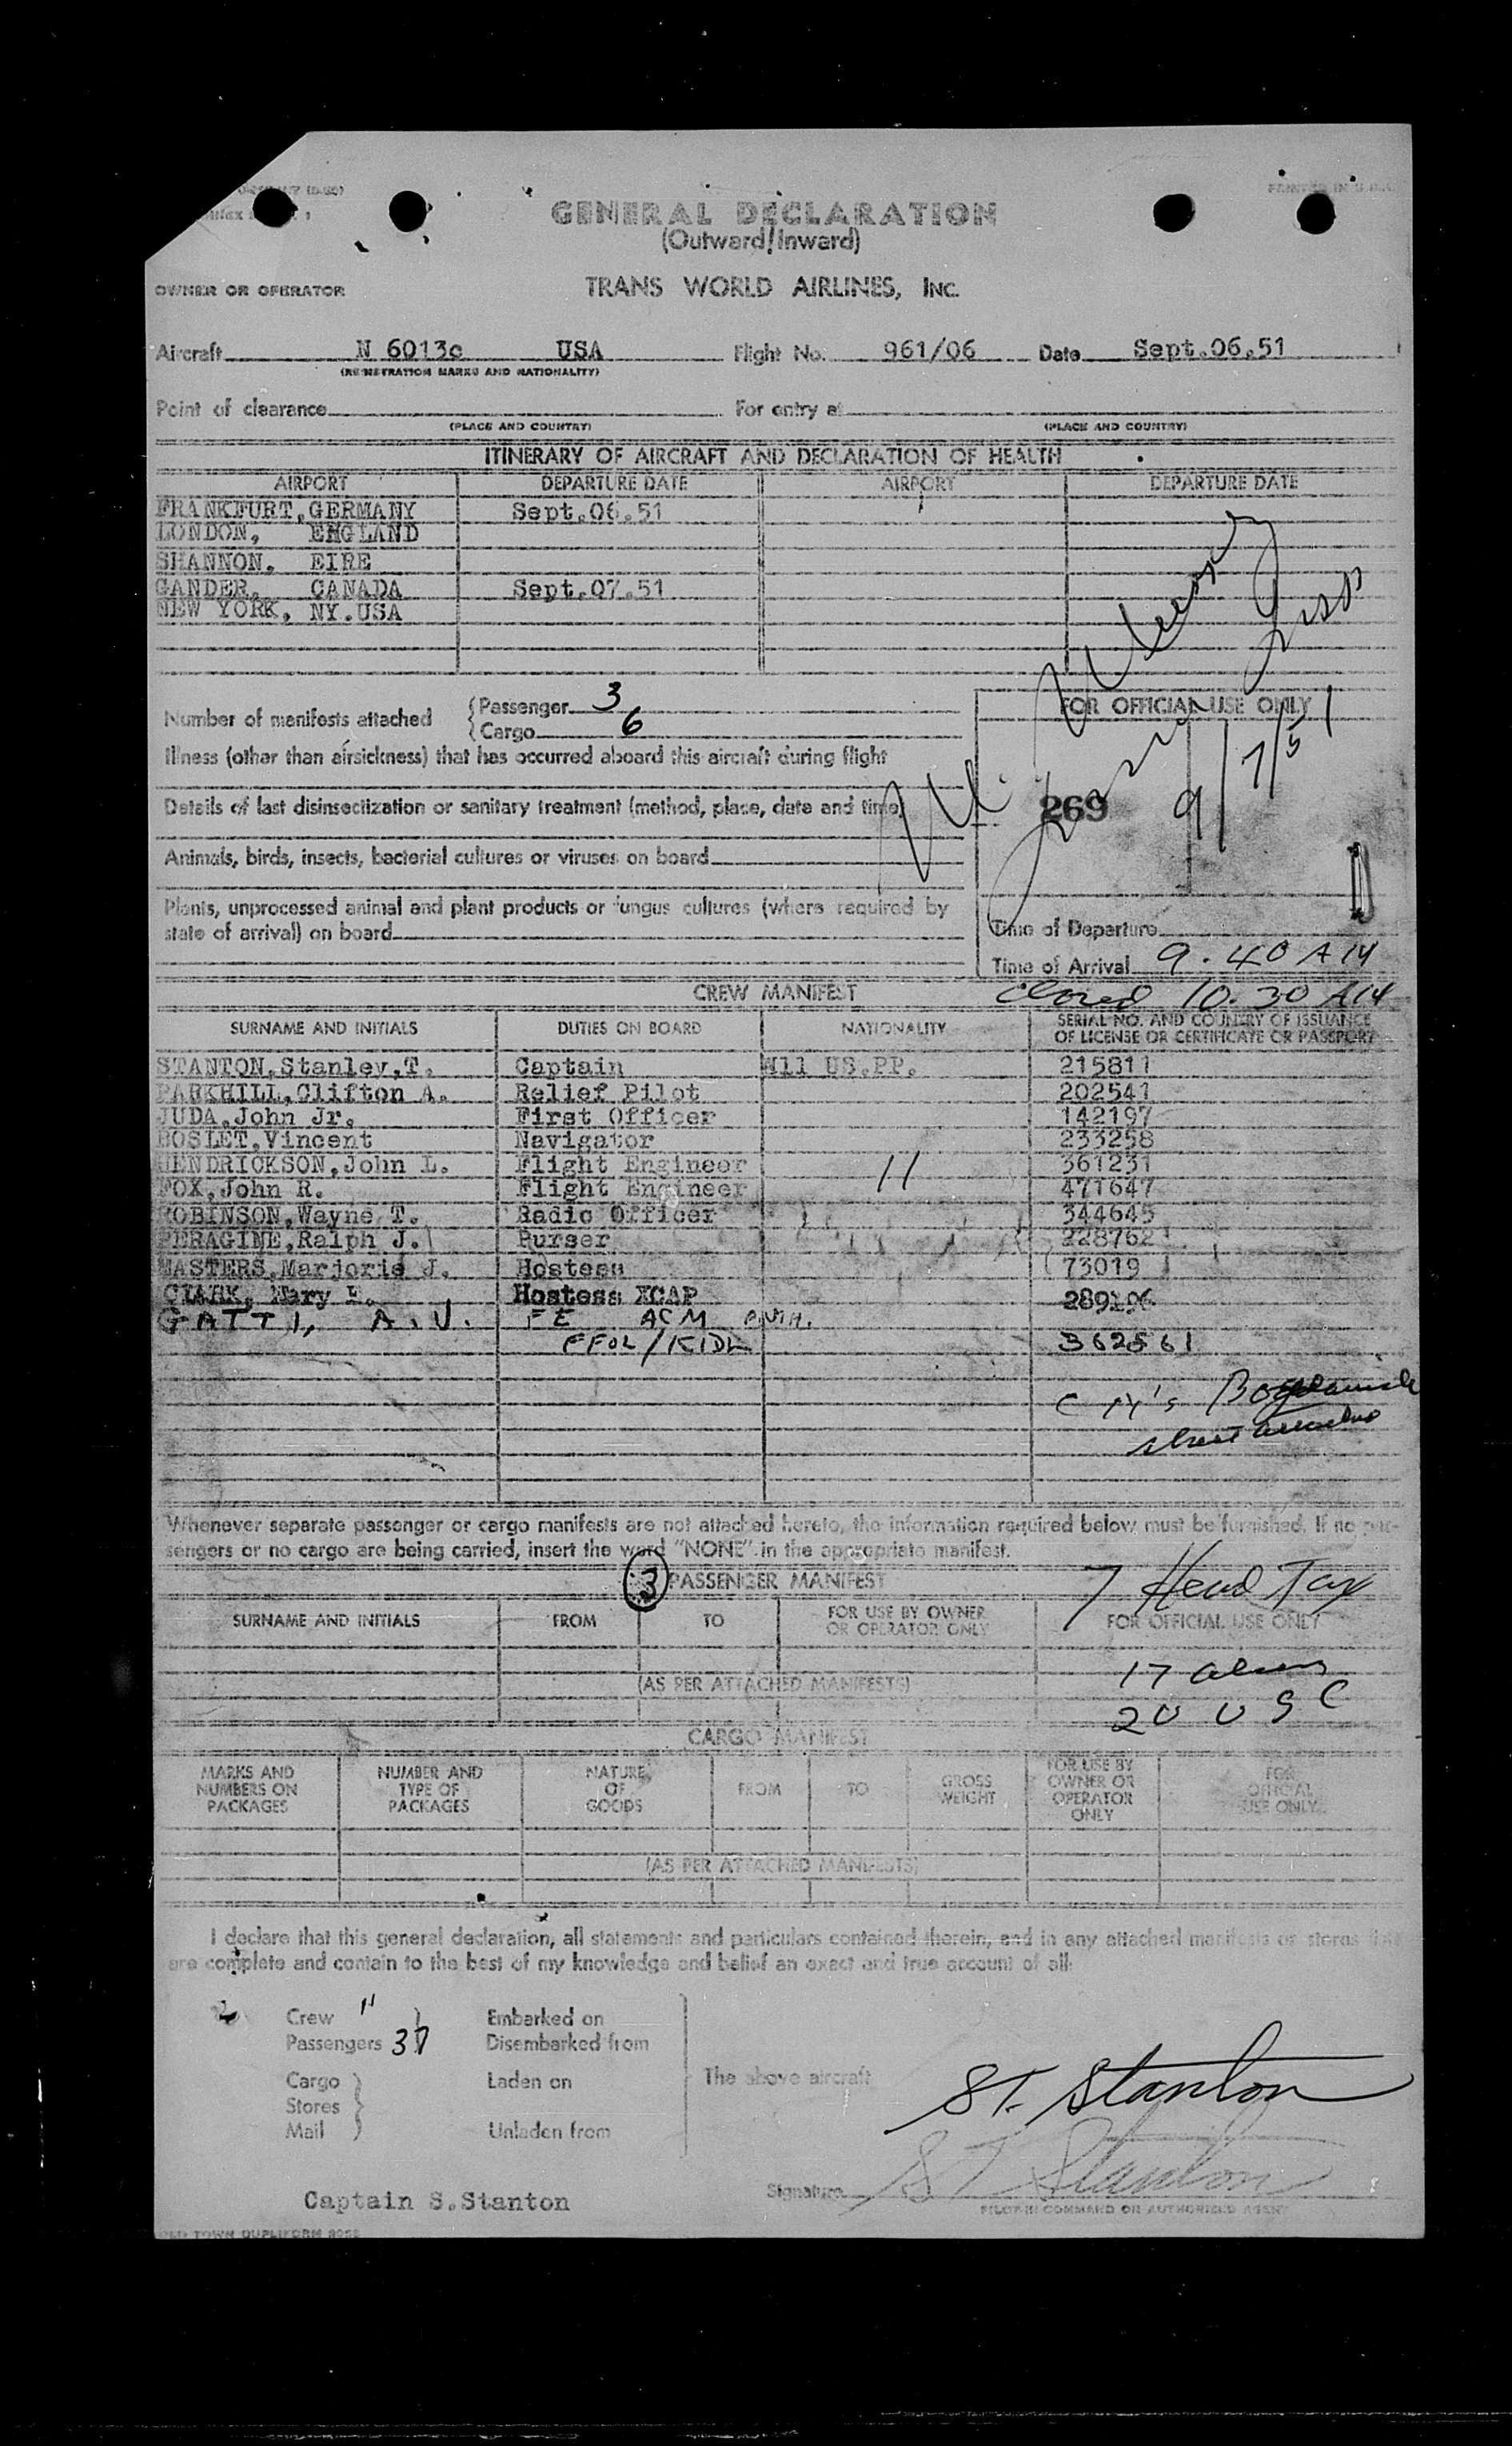 GENERAL DECLARATION
(Outward/Inward)
OWNER OR OPERATOR TRANS WORLD AIRLINES, INC.
Aircraft N 6013c USA Flight No. 961/06 Date Sept.06.51
(REGISTRATION MARKS AND NATIONALITY)
Point of clearance For entry at
(PLACE AND COUNTRY) (PLACE AND COUNTRY)
ITINERARY OF AIRCRAFT AND DECLARATION OF HEALTH
AIRPORT DEPARTURE DATE AIRPORT DEPARTURE DATE
FRANKFURT,GERMANY Sept.06.51
LONDON, ENGLAND
SHANNON, EIRE
GANDER, CANADA Sept.07.51
NEW YORK, NY.USA
Number of manifests attached
Passenger 3
Cargo 6
FOR OFFICIAL USE ONLY
Illness (other than airsickness) that has occurred aboard this aircraft during flight
Details of last disinsectization or sanitary treatment (method, place, date and time)
269
9/7/51
Animals, birds, insects, bacterial cultures or viruses on board
Plants, unprocessed animal and plant products or fungus cultures (where required by
state of arrival) on board
Time of Departure
Time of Arrival 9.40 AM
Closed 10.30 AM
CREW MANIFEST
SURNAME AND INITIALS DUTIES ON BOARD NATIONALITY SERIAL NO. AND COUNTRY OF ISSUANCE
OF LICENSE OR CERTIFICATE OR PASSPORT
STANTON,Stanley,T. Captain All US.PP. 215811
PARKHILL,Clifton A. Relief Pilot 202541
JUDA,John Jr. First Officer 142197
BOSLET,Vincent Navigator 233258
HENDRICKSON,John L. Flight Engineer 11 361231
FOX,John R. Flight Engineer 471647
ROBINSON,Wayne T. Radio Officer 344645
PERAGINE,Ralph J. Purser 228762
MASTERS,Marjorie J. Hostess 73019
CLARK, Mary Hostess XCAP
GATTI, A.V. FE ACM
/KIDL 362561
Whenever separate passenger or cargo manifests are not attached hereto, the information required below must be furnished. If no pas-
sengers or no cargo are being carried, insert the word "NONE" in the appropriate manifest.
3 PASSENGER MANIFEST 7 Head Tax
SURNAME AND INITIALS FROM TO FOR USE BY OWNER
OR OPERATOR ONLY FOR OFFICIAL USE ONLY
(AS PER ATTACHED MANIFESTS)
17 aliens
20 USC
CARGO MANIFEST
MARKS AND
NUMBERS ON
PACKAGES
NUMBER AND
TYPE OF
PACKAGES
NATURE
OF
GOODS
FROM TO
GROSS
WEIGHT
FOR USE BY
OWNER OR
OPERATOR
ONLY
FOR
OFFICIAL
USE ONLY
(AS PER ATTACHED MANIFESTS)
I declare that this general declaration, all statements and particulars contained therein, and in any attached manifests or stores
are complete and contain to the best of my knowledge and belief an exact and true account of all:
Crew 11 Embarked on
Passengers 37 Disembarked from
Cargo Laden on The above aircraft
Stores
Mail Unladen from
S.T. Stanton
Signature ST Stanton
Captain S.Stanton
PILOT IN COMMAND OR AUTHORIZED AGENT